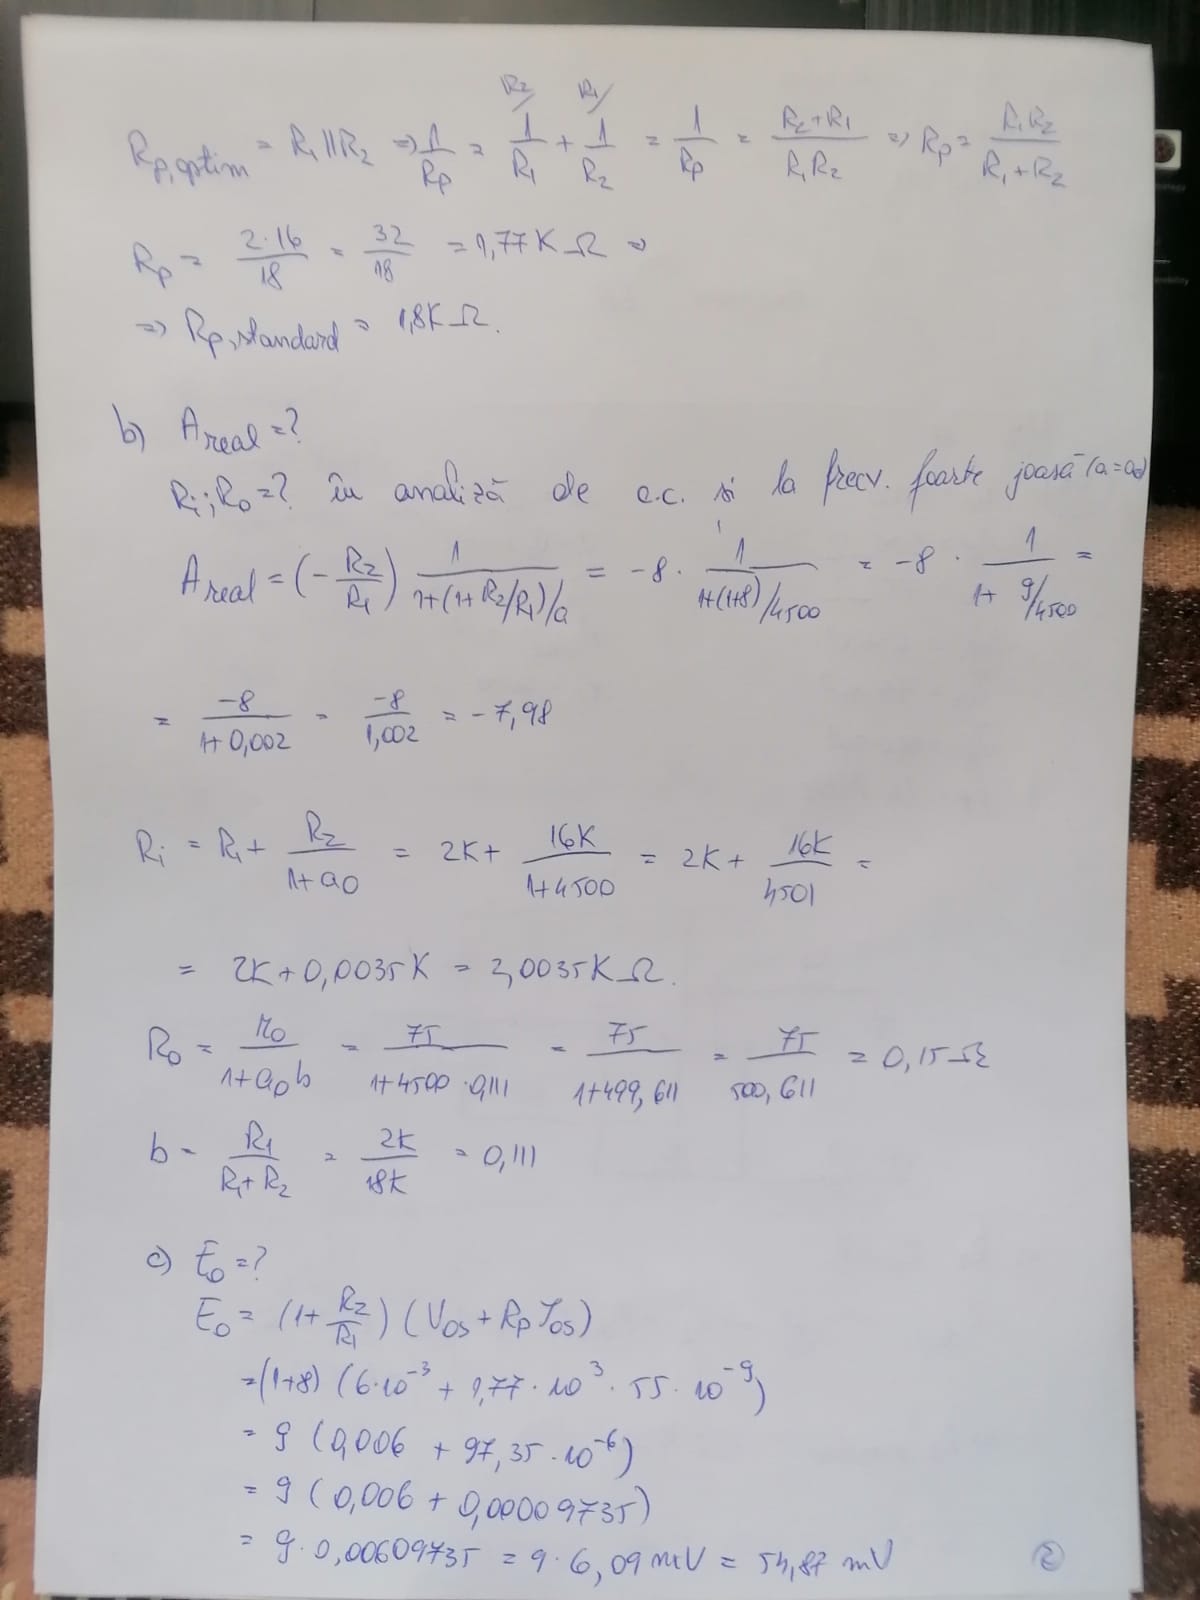 R2/ R1/
Rp,optim = R1||R2 => 1/Rp = 1/R1 + 1/R2 = 1/Rp = (R2+R1)/(R1R2) => Rp = R1R2/(R1+R2)
Rp = 2·16/18 = 32/18 = 1,77KΩ =>
=> Rp,standard = 1,8KΩ.
b) Areal=?
Ri; Ro=? în analiză de c.c. și la frecv. foarte joasă (a=a0)
Areal = (-R2/R1) 1/(1+(1+R2/R1)/a) = -8 · 1/(1+(1+8)/4500) = -8 · 1/(1+ 9/4500) =
= -8/(1+0,002) = -8/1,002 = -7,98
Ri = R1 + R2/(1+a0) = 2K + 16K/(1+4500) = 2K + 16K/4501 =
= 2K+0,0035K = 2,0035KΩ.
Ro = r0/(1+a0b) = 75/(1+4500·0,111) = 75/(1+499,611) = 75/500,611 = 0,15Ω
b = R1/(R1+R2) = 2K/18K = 0,111
c) Eo=?
Eo = (1+R2/R1) (Vos + Rp Ios)
=(1+8) (6·10⁻³ + 1,77·10³·55·10⁻⁹)
= 9 (0,006 + 97,35·10⁻⁶)
= 9 (0,006 + 0,00009735)
= 9·0,00609735 = 9·6,09mV = 54,87 mV
2